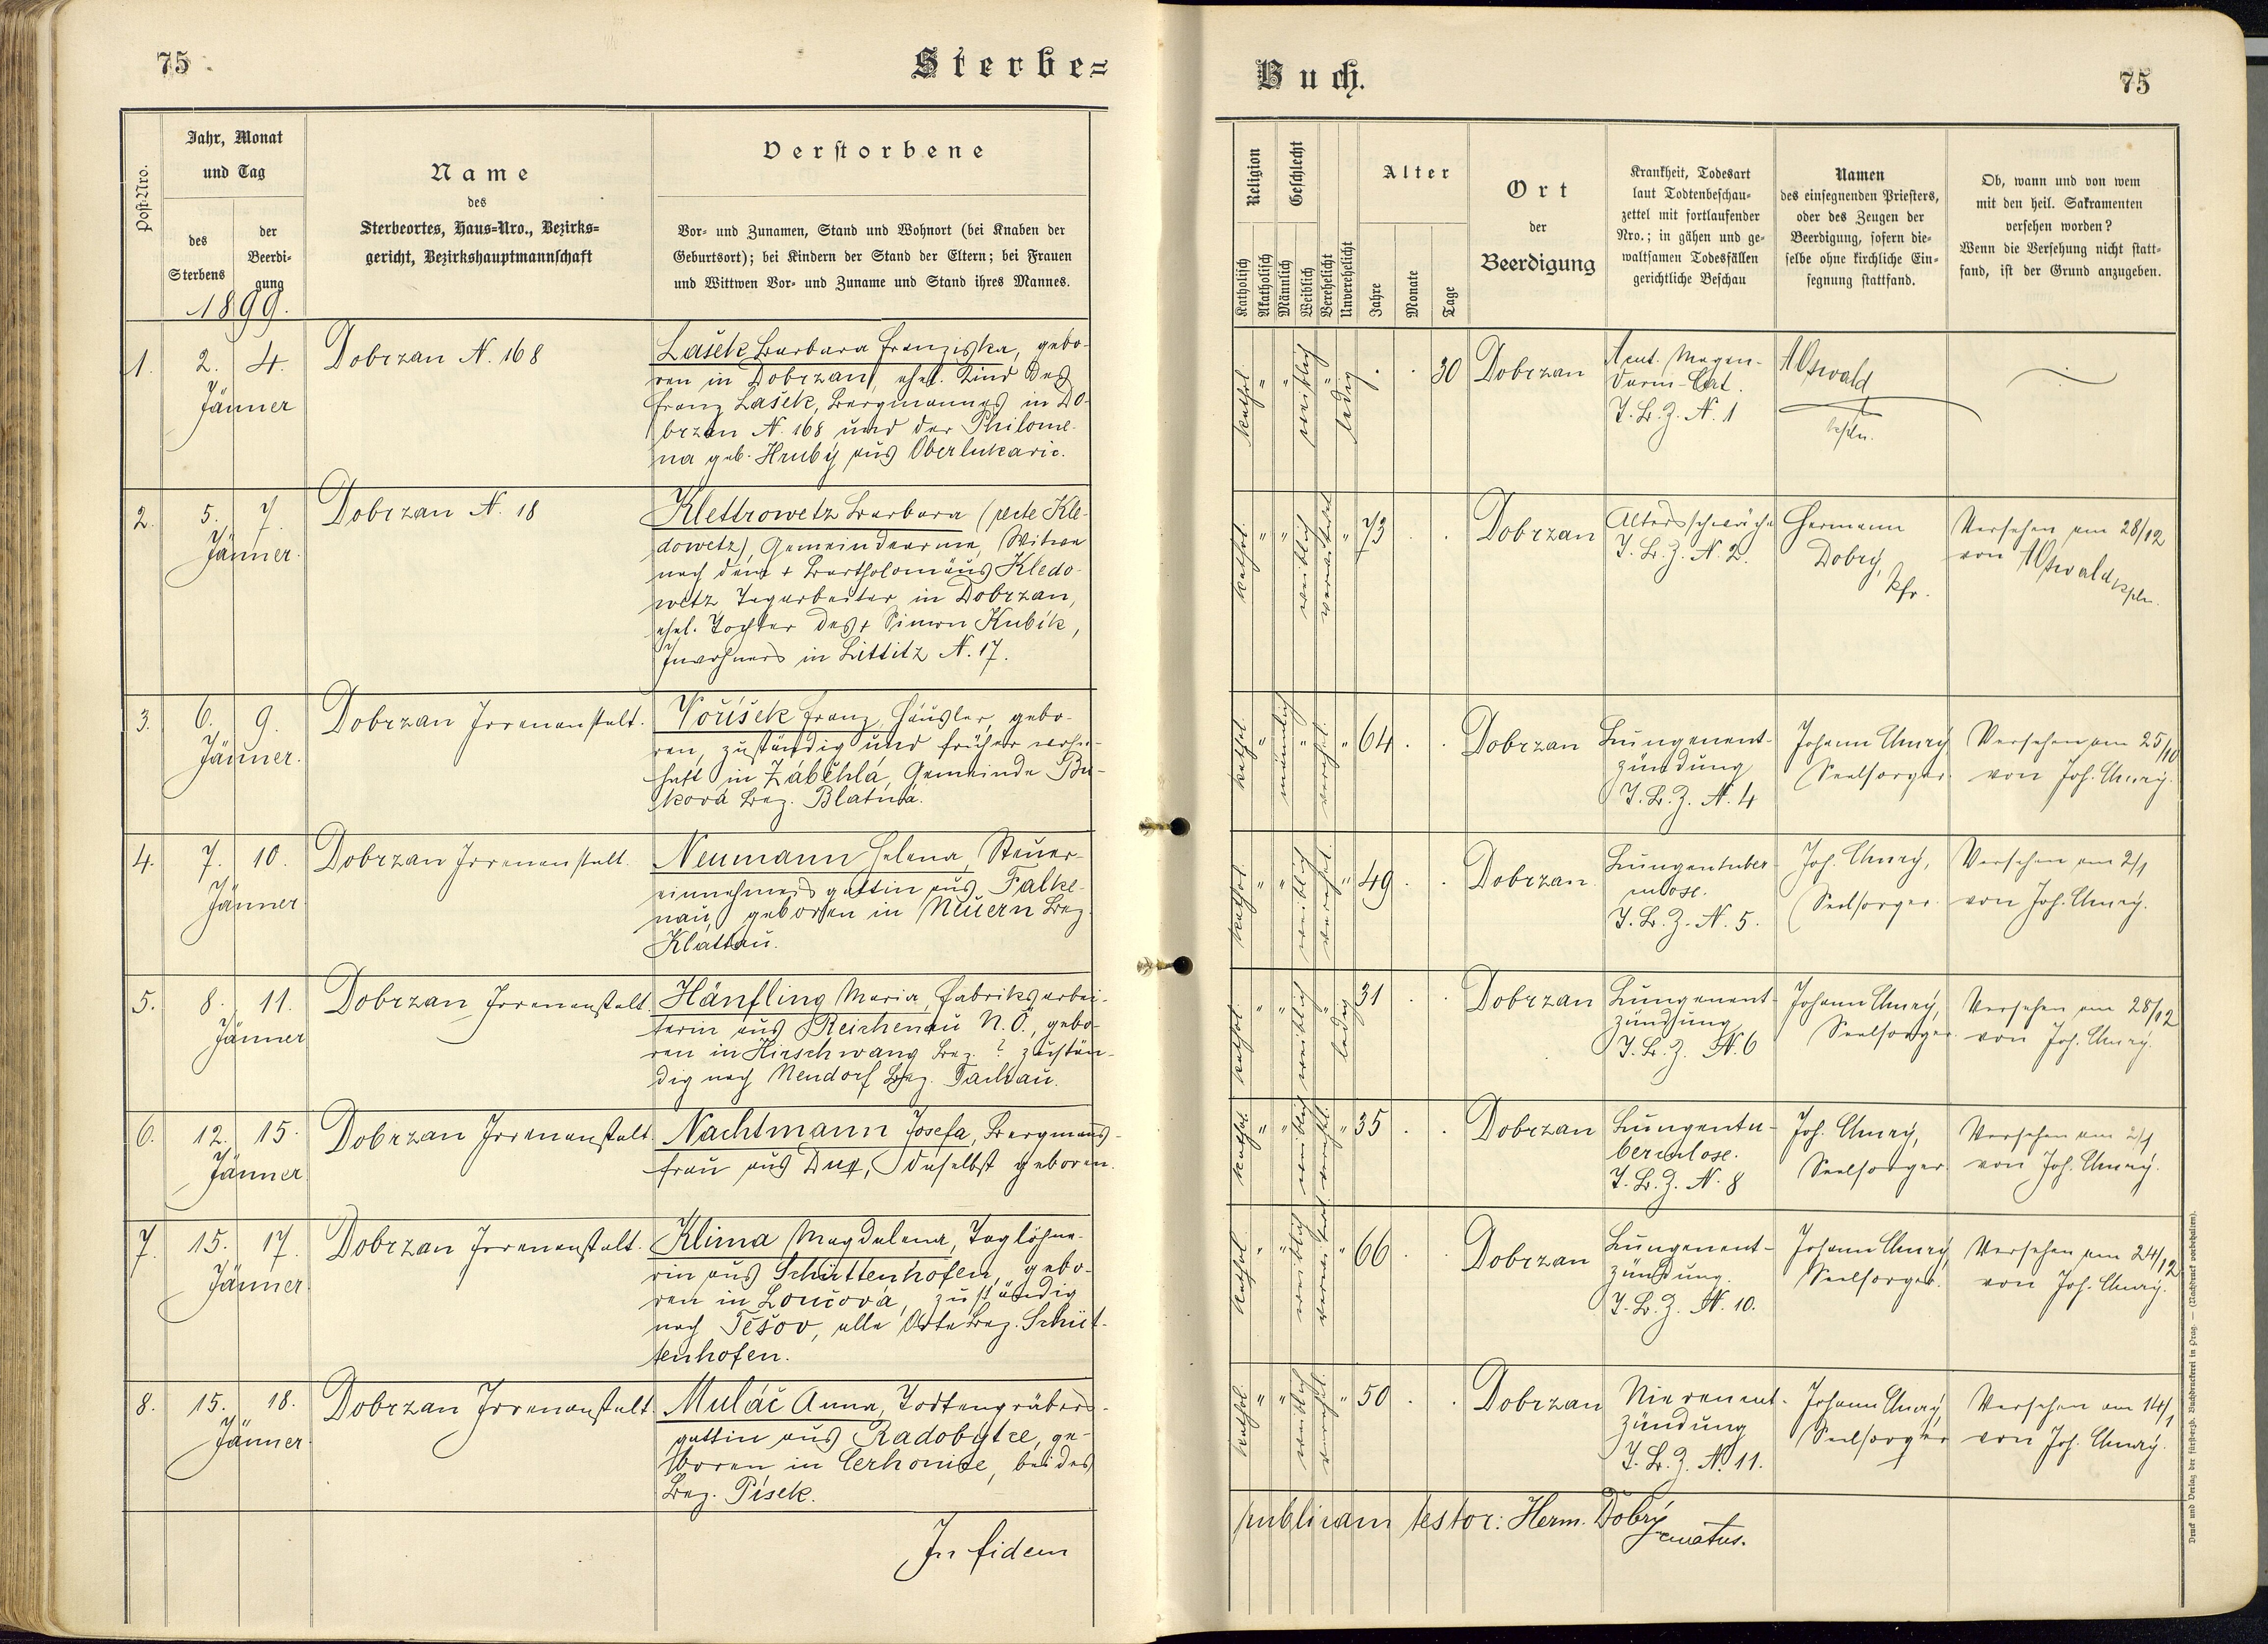 75
Sterbe=
Post-Nro.
Jahr, Monat
und Tag
des
Sterbens
der
Beerdi-
gung
1899.
Name
des
Sterbeortes, Haus=Nro., Bezirks=
gericht, Bezirkshauptmannschaft
Verstorbene
Vor- und Zunamen, Stand und Wohnort (bei Knaben der
Geburtsort); bei Kindern der Stand der Eltern; bei Frauen
und Wittwen Vor- und Zuname und Stand ihres Mannes.
1. 2. 4.
Jänner
Dobrzan N. 168
Lašek Barbara Franziska, gebo-
ren in Dobrzan, ehel. Kind des
Franz Lašek, Bergmanns in Do-
brzan N. 168 und der Philome-
na geb. Hrubý aus Oberlukavic.
2. 5. 7.
Jänner.
Dobrzan N. 18
Klettrowetz Barbara (recte Kle-
dowetz), Gemeindearme, Witwe
nach dem + Bartholomäus Kledo-
wetz Tagarbeiter in Dobrzan,
ehel. Tochter des + Simon Kubík,
Inwohners in Littitz N. 17.
3. 6. 9.
Jänner.
Dobrzan Irrenanstalt.
Voříšek Franz, Häusler, gebo-
ren, zuständig und früher wohn-
haft in Záběhlá, Gemeinde Bu-
ková Bez. Blatná.
4. 7. 10.
Jänner
Dobrzan Irrenanstalt.
Neumann Helena, Steuer-
einnehmersgattin aus Falke-
nau, geboren in Neuern Bez.
Klattau.
5. 8. 11.
Jänner
Dobrzan Irrenanstalt.
Hänfling Maria, Fabriksarbei-
terin aus Reichenau N. Ö., gebo-
ren in Hirschwang Bez. ? zustän-
dig nach Neudorf Bez. Tachau.
6. 12. 15.
Jänner
Dobrzan Irrenanstalt.
Nachtmann Josefa, Bergmanns-
frau aus Dux, daselbst geboren.
7. 15. 17.
Jänner
Dobrzan Irrenanstalt.
Klima Magdalena, Taglöhne-
rin aus Schüttenhofen, gebo-
ren in Loučová, zuständig
nach Tešov, alle Orte Bez. Schüt-
tenhofen.
8. 15. 18.
Jänner
Dobrzan Irrenanstalt.
Muláč Anna, Todtengräbers-
gattin aus Radobytce, ge-
boren in Cerhonitze, beides
Bez. Pisek.
In fidem
Buch.
75
Religion
Katholisch
Akatholisch
Geschlecht
Männlich
Weiblich
Verehelicht
Unverehelicht
Alter
Jahre
Monate
Tage
Ort
der
Beerdigung
Krankheit, Todesart
laut Todtenbeschau-
zettel mit fortlaufender
Nro.; in gähen und ge-
waltsamen Todesfällen
gerichtliche Beschau
Namen
des einsegnenden Priesters,
oder des Zeugen der
Beerdigung, sofern die-
selbe ohne kirchliche Ein-
segnung stattfand.
Ob, wann und von wem
mit den heil. Sakramenten
versehen worden?
Wenn die Versehung nicht statt-
fand, ist der Grund anzugeben.
kathol. " " weiblich " ledig . . 30 Dobrzan
Acut. Magen-
darm-Cat.
T. B. Z. N. 1
A Oswald
kathol. " " weiblich verwitwet " 73 . . Dobrzan
Altersschwäche
T. B. Z. N. 2.
Hermann
Dobrý,
Pfr.
Versehen am 28/12
von A Oswald kpln.
kathol. " männlich " verehel. " 64 . . Dobrzan
Lungenent-
zündung
T. B. Z. N. 4
Seelsorger.
Versehen am 25/10
kathol. " " weiblich verehel. " 49 . . Dobrzan
Lungentuber-
culose.
T. B. Z. N. 5.
Seelsorger.
Versehen am 2/1
kathol. " " weiblich " ledig 31 . . Dobrzan
Lungenent-
zündung
T. B. Z. N. 6
Seelsorger.
Versehen am 28/12
kathol. " " weiblich verehel. " 35 . . Dobrzan
Lungentu-
berculose.
T. B. Z. N. 8
Seelsorger.
Versehen am 2/1
kathol. " " weiblich verwitwet " 66 . . Dobrzan
Lungenent-
zündung.
T. B. Z. N. 10.
Seelsorger.
Versehen am 24/12
kathol. " " weiblich verehel. " 50 . . Dobrzan
Nierenent-
zündung
T. B. Z. N. 11.
Seelsorger
Versehen am 14/1
publicam testor: Herm. Dobrý
curatus.
Druck und Verlag der fürsterzb. Buchdruckerei in Prag. — (Nachdruck vorbehalten).